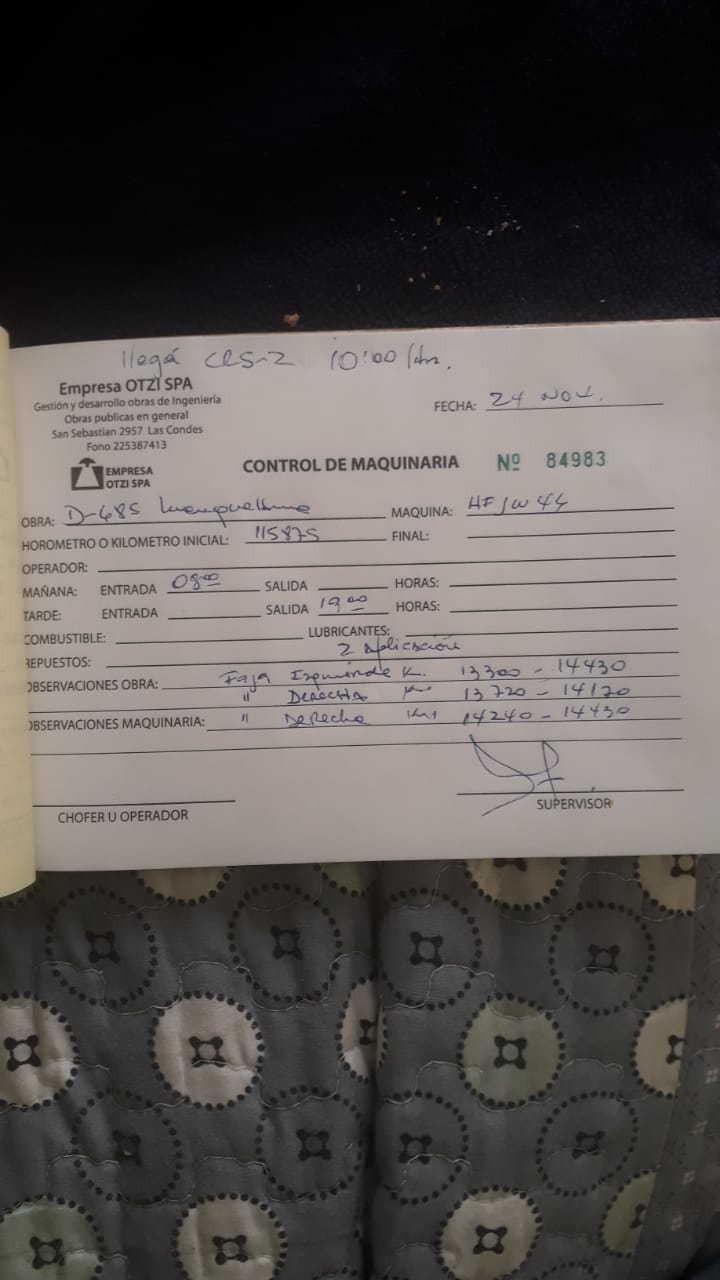 llegó CRS-2 10:00 hrs.
Empresa OTZI SPA
Gestión y desarrollo obras de Ingeniería
Obras publicas en general
San Sebastian 2957 Las Condes
Fono 225387413
FECHA: 24 NOV.
EMPRESA
OTZI SPA
CONTROL DE MAQUINARIA Nº 84983
OBRA: D-685
MAQUINA:
HOROMETRO O KILOMETRO INICIAL: 115875 FINAL:
OPERADOR:
MAÑANA: ENTRADA 08:00 SALIDA HORAS:
TARDE: ENTRADA SALIDA 19:00 HORAS:
COMBUSTIBLE: LUBRICANTES:
REPUESTOS: 2 aplicación
OBSERVACIONES OBRA: Faja Izquierda K. 13300 - 14430
" Derecha Km 13720 - 14170
OBSERVACIONES MAQUINARIA: " Derecha Km 14240 - 14430
CHOFER U OPERADOR
SUPERVISOR